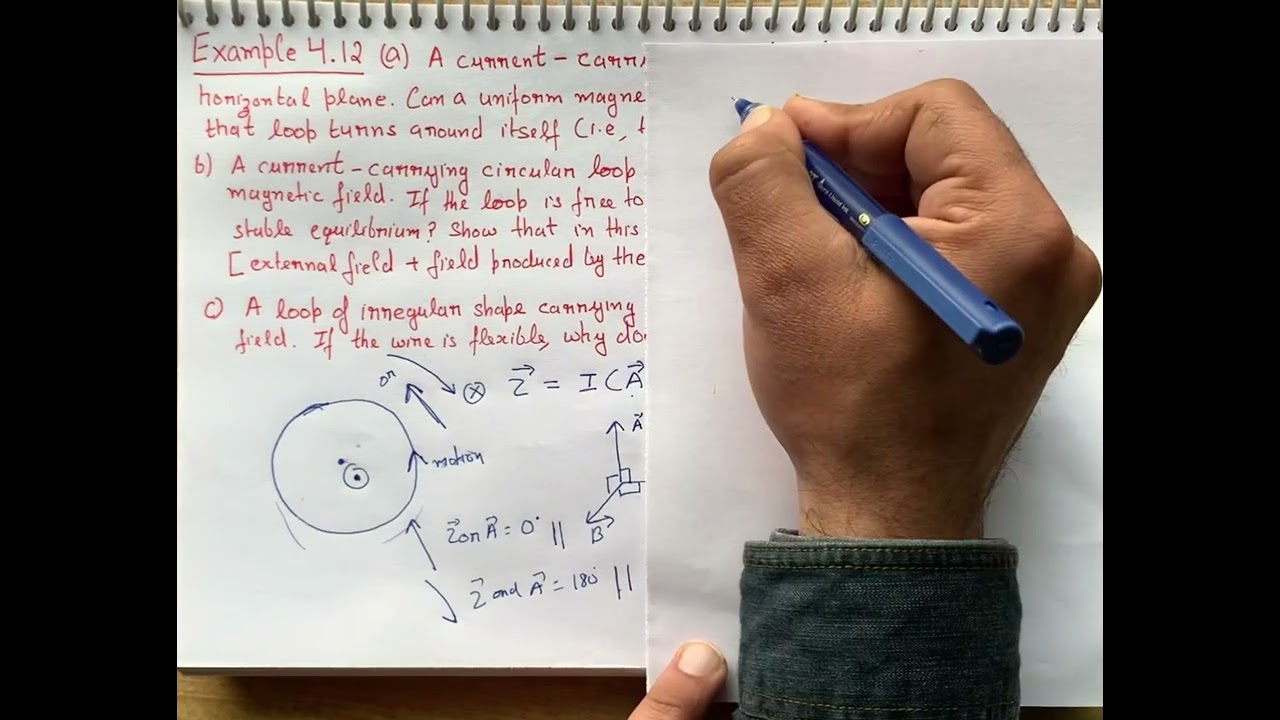 Example 4.12 (a) A current-carry
horizontal plane. Can a uniform magne
that loop turns around itself (i.e, t
b) A current-carrying circular loop
magnetic field. If the loop is free to
stable equilibrium? Show that in this
[external field + field produced by the
c) A loop of irregular shape carrying
field. If the wire is flexible, why do
on
⊗ τ⃗ = I(A⃗
motion
A⃗
τ⃗ or A⃗ = 0° || B
τ⃗ and A⃗ = 180° ||